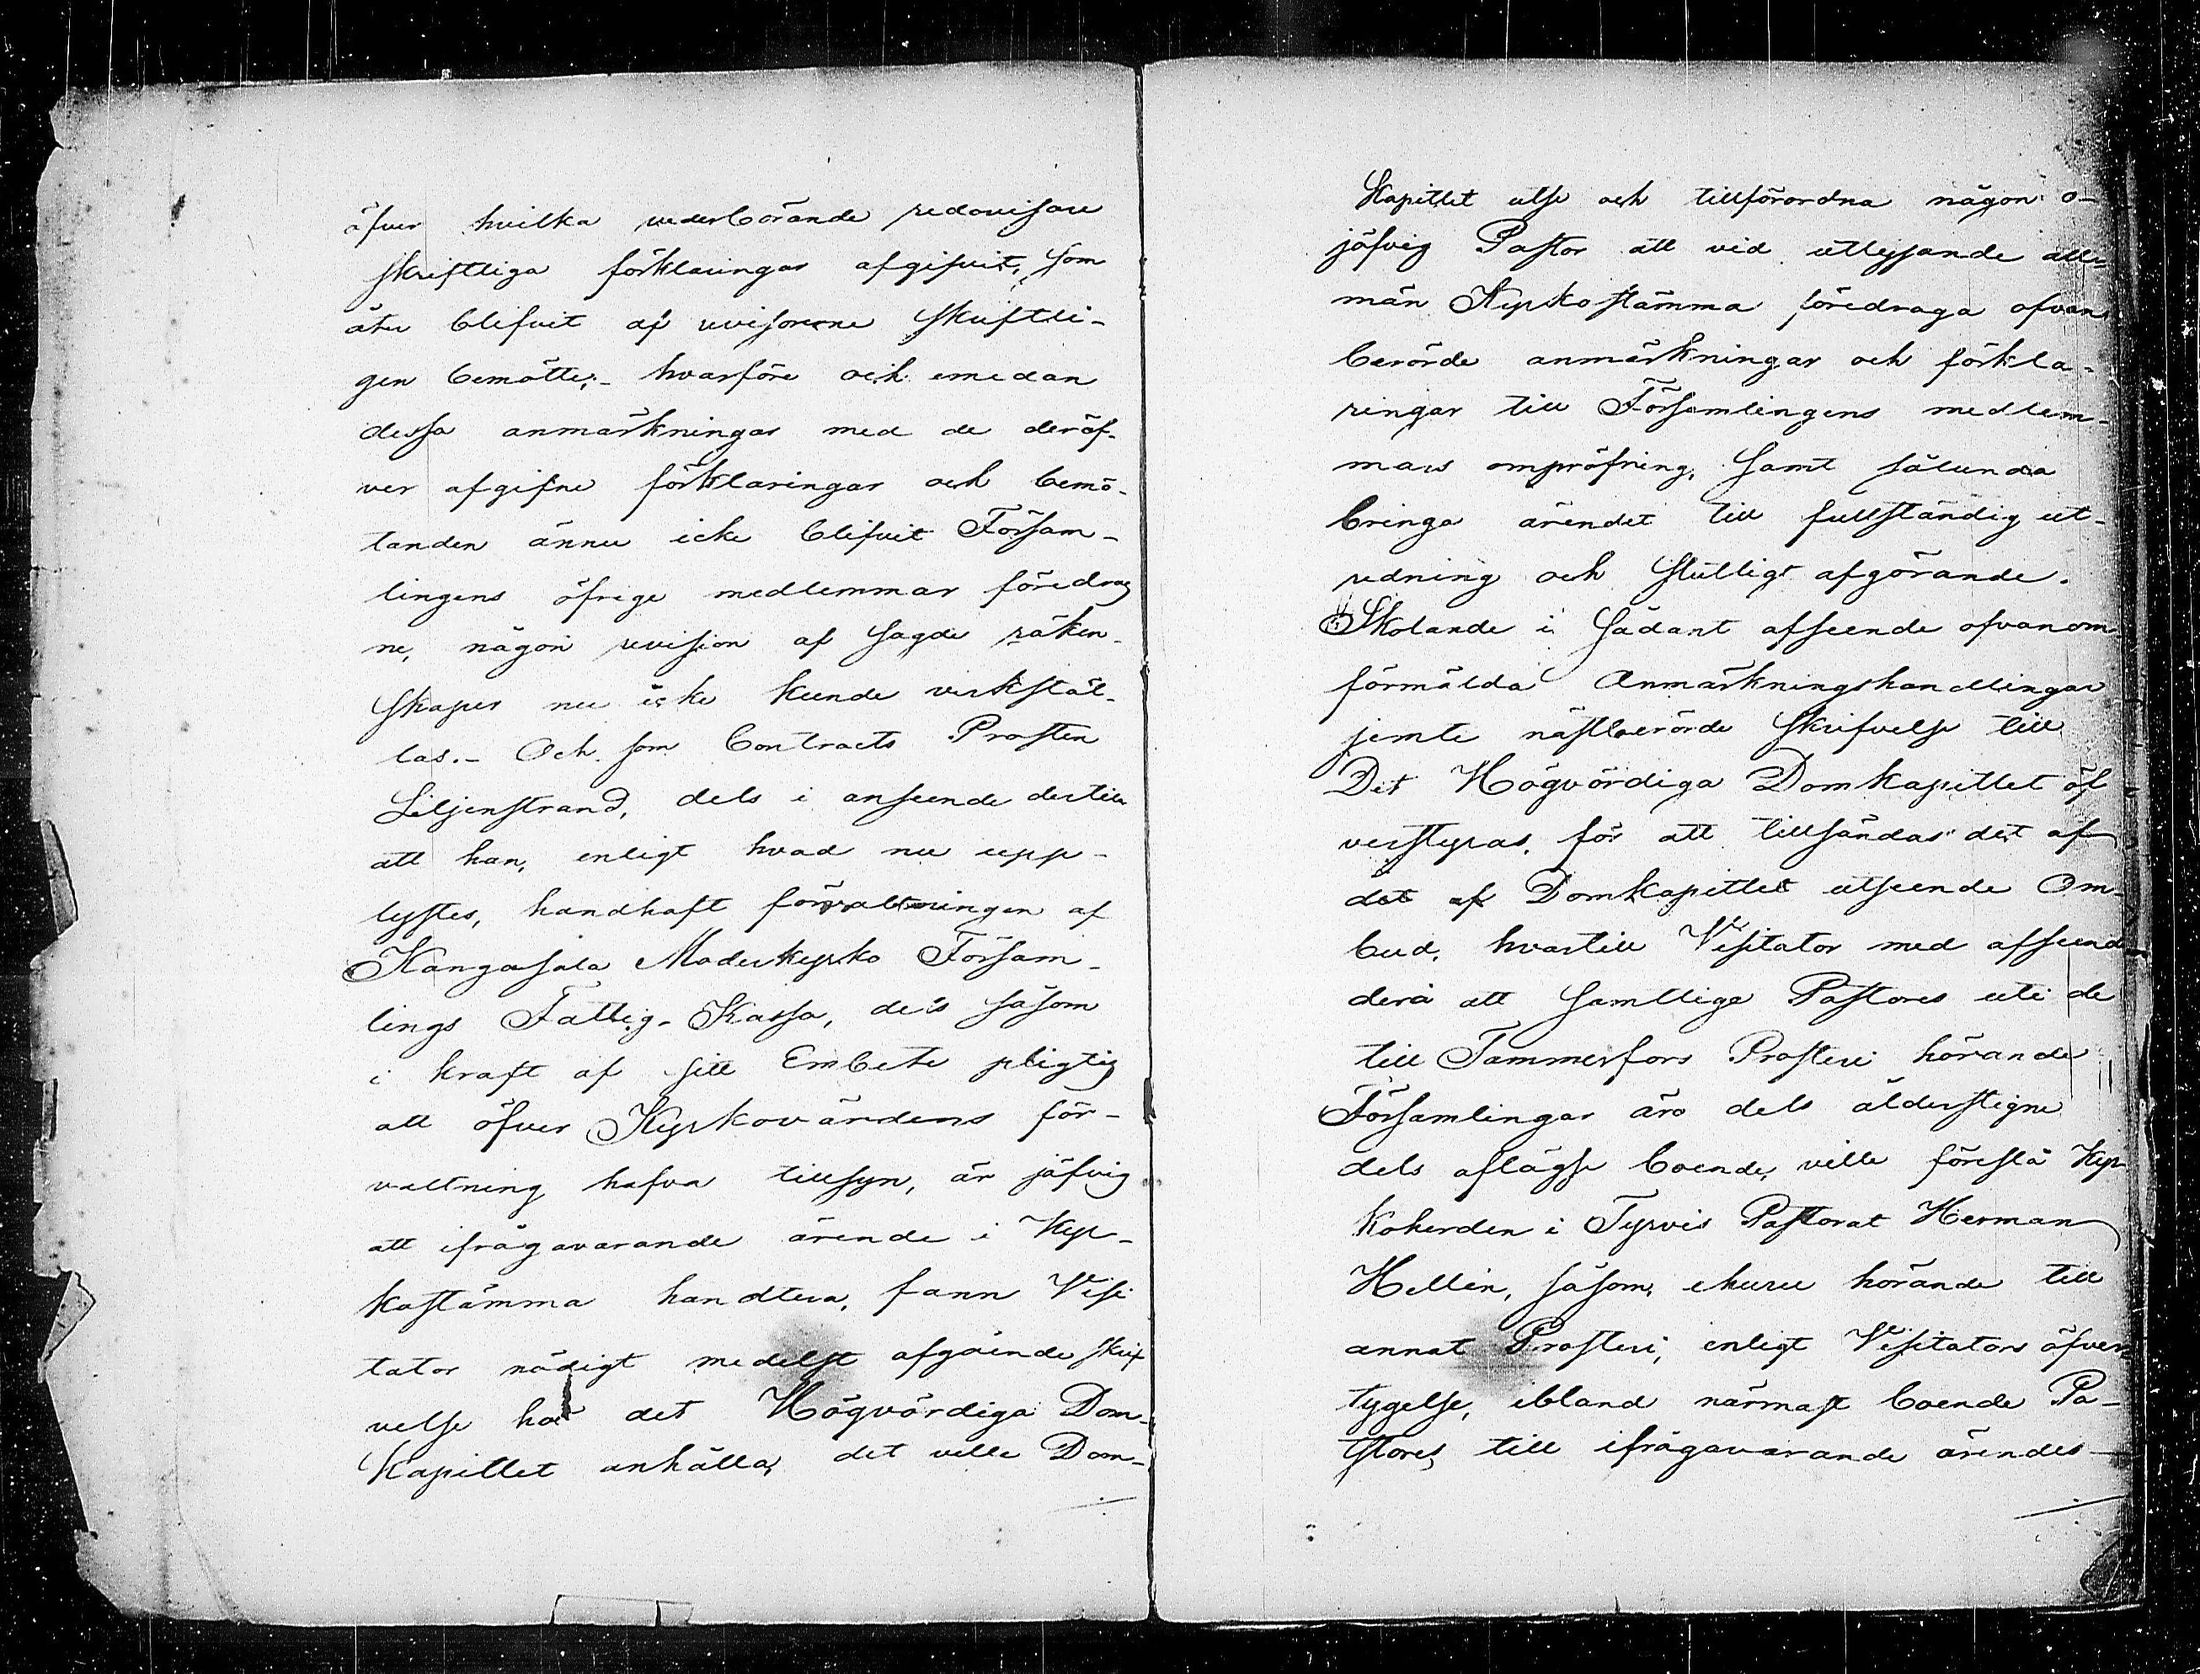 öfver hvilka vederbörande redovisare
skriftliga förklaringar afgifvit, som
åter blifvit af revisorerne skriftli-
gen bemötte; - hvarföre och emedan
dessa anmärkningar med de deröf-
ver afgifne förklaringar och bemö-
tanden ännu icke blifvit Försam-
lingens öfrige medlemmar föredrag
ne, någon revision af sagde räken-
skaper nu icke kunde verkstäl-
las. - Och som Contracts Prosten
Liljenstrand, dels i anseende dertill
att han, enligt hvad nu upp-
lystes, handhaft förvaltningen af
Kangasala Moderkyrko Försam-
lings Fattig-Kassa, dels såsom
i kraft af sitt Embete pligtig
att öfver Kyrkovärdens för-
valtning hafva tillsyn, är jäfvig
att ifrågavarande ärende i Kyr-
kostämma handtera, fann Visi
tator nödigt medelst afgående skrif
velse hos det Högvördiga Dom-
Kapitlet anhålla, det ville Dom-
Kapitlet utse och tillförordna någon o-
jäfvig Pastor att vid utlysande all-
män Kyrkostämma föredraga ofvan
berörde anmärkningar och förkla-
ringar till Församlingens medlem-
mars ompröfning, samt sålunda
bringa ärendet till fullständig ut-
redning och slutligt afgörande.
Skolande i sådant afseende ofvanom
förmälda Anmärkningshandlingar
jemte nästberörde skrifvelse till
Det Högvördiga Domkapitlet öf
verstyras, för att tillsändas det af
det af Domkapitlet utseende Om-
bud, hvartill Visitator med afseende
derå att samtliga Pastores uti de
till Tammerfors Prosteri hörande
Församlingar äro dels ålderstigne
dels aflägse boende, ville föreslå Kyr-
koherden i Tyrvis Pastorat Herman
Hellén, såsom, ehuru hörande till
annat Prosteri, enligt Visitators öfver-
tygelse, ibland närmast boende Pa-
stores, till ifrågavarande ärendes